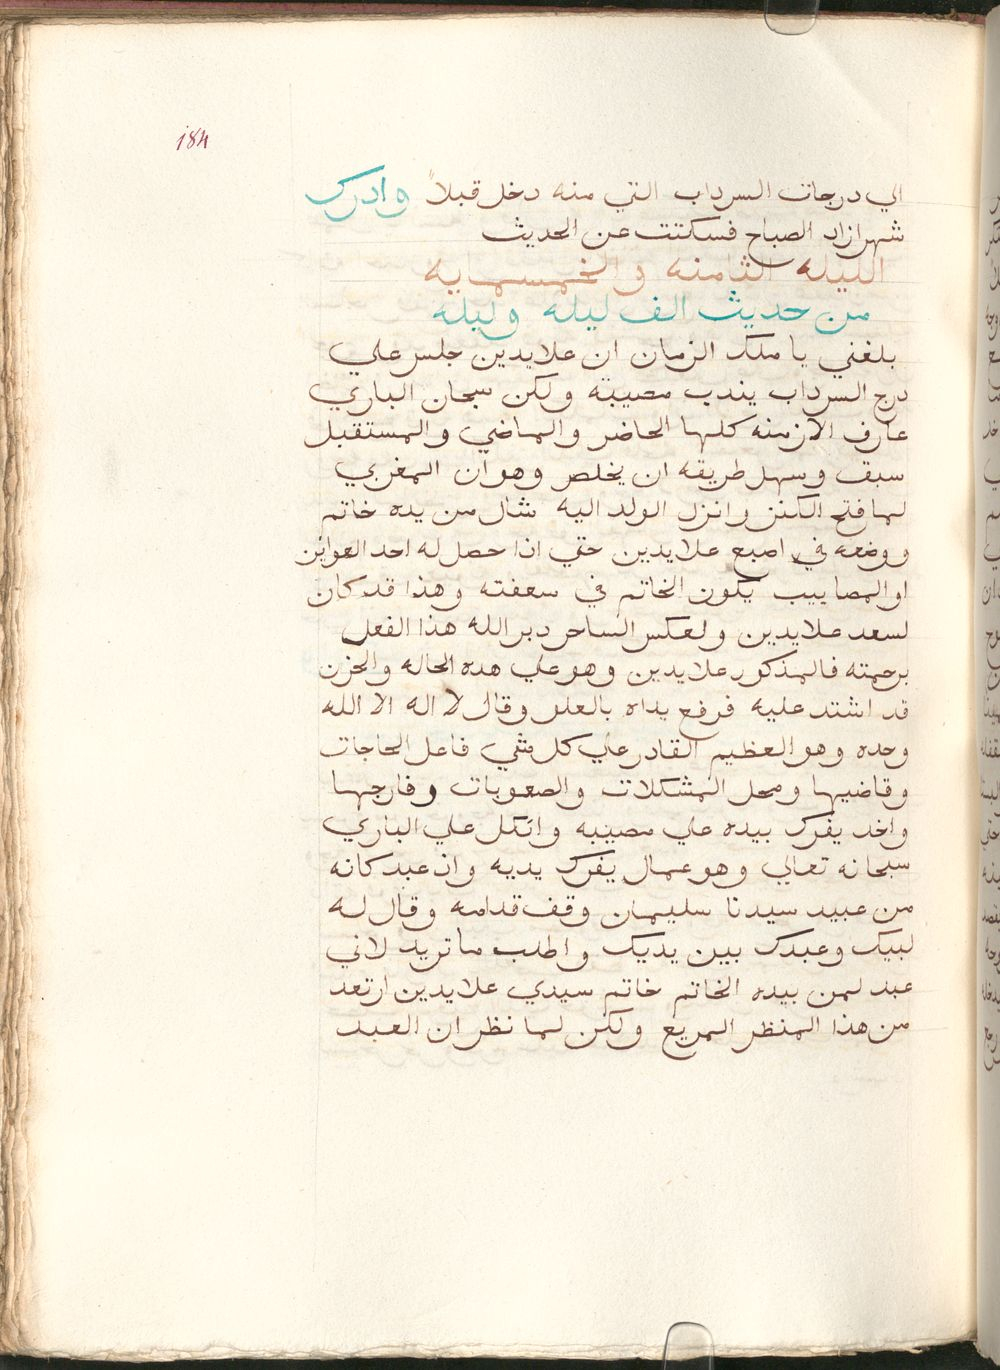 184
الي درجات السرداب التي منه دخل قبلاً وادرك
شهرازاد الصباح فسكتت عن الحديث
الليله الثامنه والخمسمايه
من حديث الف ليله وليله
بلغني يا ملك الزمان ان علايدين جلس علي
درج السرداب يندب مصيبته ولكن سبحان الباري
عارف الازمنه كلها الحاضر والماضي والمستقبل
سبق وسهل طريقه ان يخلص وهو ان المغربي
لما فتح الكنز وانزل الولد اليه شال من يده خاتم
ووضعه في اصبع علايدين حتي اذا حصل له احد العوايز
او المصاييب يكون الخاتم في سعفته وهذا قد كان
لسعد علايدين ولعكس الساحر دبر الله هذا الفعل
برحمته فالمذكور علايدين وهو علي هده الحاله والحزن
قد اشتد عليه فرفع يداه بالعلو وقال لا اله الا الله
وحده وهو العظيم القادر علي كل شي فاعل الحاجات
وقاضيها ومحل المشكلات والصعوبات وفارجها
واخد يفرك بيده علي مصيبه واتكل علي الباري
سبحانه تعالي وهو عمال يفرك يديه وان عبد كانه
من عبيد سيدنا سليمان وقف قدامه وقال له
لبيك وعبدك بين يديك واطلب ما تريد لاني
عبد لمن بيده الخاتم خاتم سيدي علايدين ارتعد
من هذا المنظر المريع ولكن لما نظر ان العبد